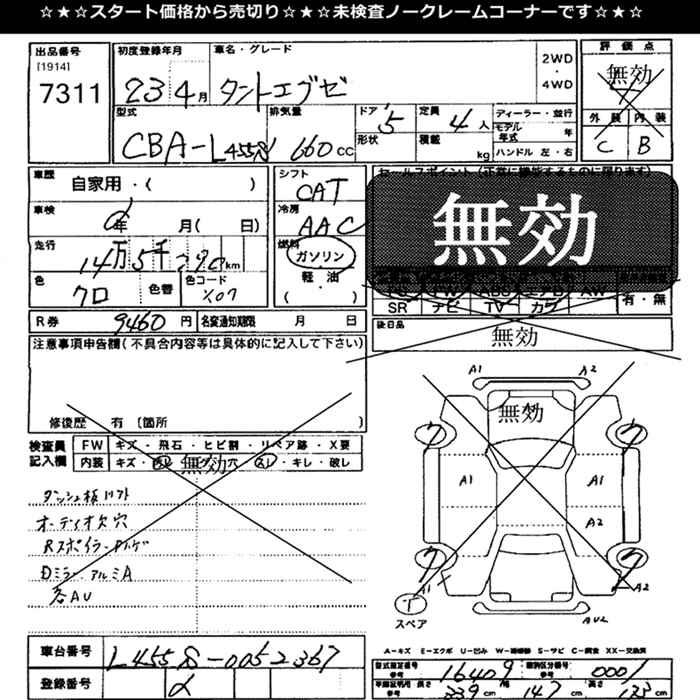 ☆★☆★スタート価格から売切り☆★☆★未検査ノークレームコーナーです☆★☆
出品番号 初度登録年月 車名・グレード 評価点
[1914] 2WD
・
7311 23 4月 タントエグゼ 4WD 無効
型式 排気量 ドア 5 定員 4人 ディーラー・並行 外装 内装
CBA-L455S 660cc 形状 積載 kg モデル年式 年 C B
ハンドル 左・右
車歴 自家用・( ) シフト CAT セールスポイント(正常に機能するものに限ります)
車検 年 月( 日) 冷房 AAC 無効
走行 14万5千 km 燃料 ガソリン
軽・油
( )
色 クロ 色替 色コード X07
SR ナビ TV カワ 有・無
R券 9460円 名変通知期限 月 日 後日品 無効
注意事項申告欄(不具合内容等は具体的に記入して下さい)
修復歴 有 [箇所
A1 A2
無効
A1 A1
A2
A1 A2
スペア
検査員記入欄 FW キズ・飛石・ヒビ割・リペア跡・X要
内装 キズ・無効・穴・キレ・破し
ダッシュ板リフト
オーディオ欠穴
Dミラー アルミA
各AU
A-キズ E-エクボ U-凹み W-補修跡 S-サビ C-腐食 XX-交換済
車台番号 L455S-0052367 型式指定番号 参考 16409 類別区分番号 参考 0001
登録番号 長さ 339cm 幅 147cm 高さ cm